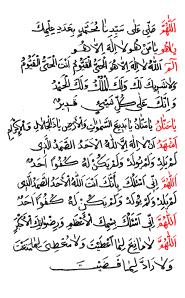 اللهم صل على سيدنا محمد بعدد علمك
ياهو يا من هو لا إله إلا هو
الم الله لا إله إلا هو الحي القيوم أنت الحي القيوم
لا شريك لك ولك الملك ولك الحمد
وأنك على كل شيء قدير
يا حنان يا منان يا بديع السموات والأرض يا ذا الجلال والإكرام
لا إله إلا هو الأحد الصمد الذي
لم يلد ولم يولد ولم يكن له كفوا أحد
اللهم إني أسألك بأنك أنت الله الأحد الصمد الذي
لم يلد ولم يولد ولم يكن له كفوا أحد
اللهم إني أسألك باسمك الأعظم ورضوانك الأكبر
اللهم لا مانع لما أعطيت ولا معطي لما منعت
ولا راد لما قضيت